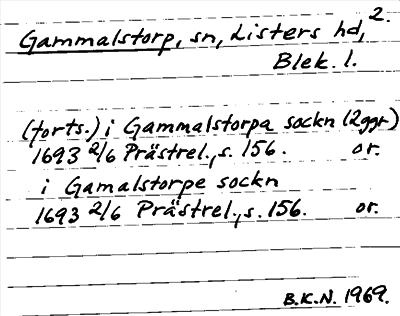 2.
Gammalstorp, sn, Listers hd,
Blek. l.
(forts.) i Gammalstorpa sockn (2ggr)
1693 2/6 Prästrel., s. 156. or.
i Gamalstorpe sockn
1693 2/6 Prästrel., s. 156. or.
B.K.N. 1969.